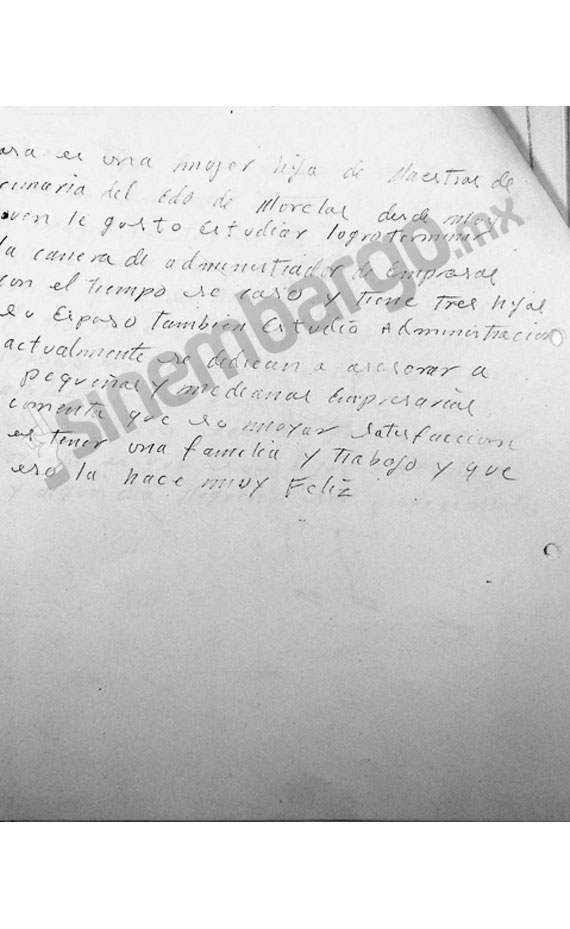 ara es una mujer hija de Maestros de
rimaria del Edo de Morelos desde muy
oven le gusto Estudiar logro terminar
la carrera de administrador de Empresas
con el tiempo se caso y tiene Tres hijos
su Esposo Tambien Estudio Administracion
actualmente se dedican a asesorar a
pequeñas y medianas Empresarias
comenta que su mayor satisfaccion
es tener una familia y trabajo y que
eso la hace muy Feliz
sinembargo.mx